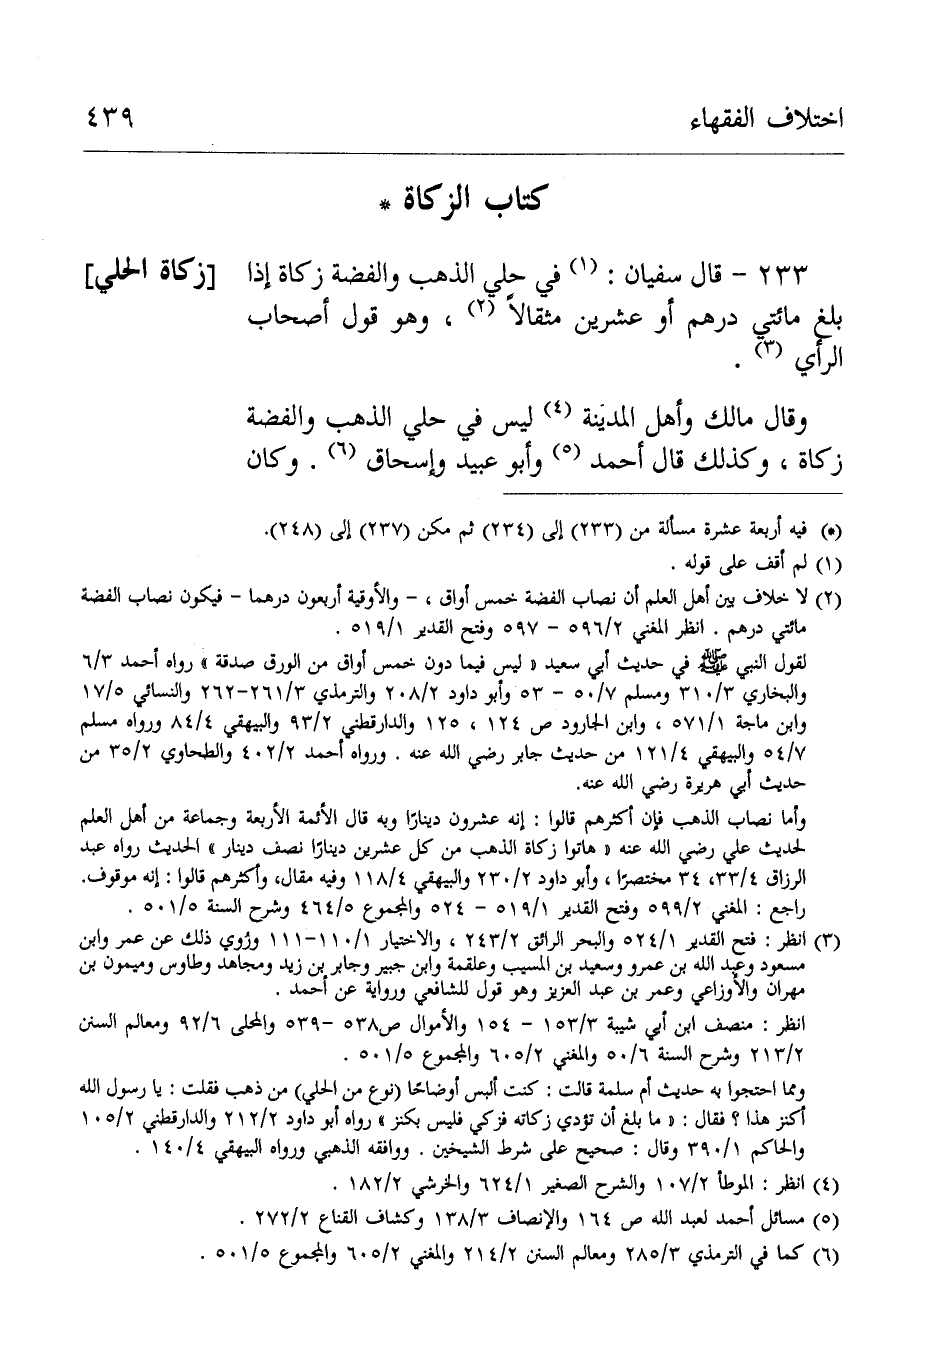 اختلاف الفقهاء ٤٣٩
كتاب الزكاة *
٢٣٣ – قال سفيان : (١) في حلي الذهب والفضة زكاة إذا [زكاة الحلي]
بلغ مائتي درهم أو عشرين مثقالاً (٢) ، وهو قول أصحاب
الرأي (٣) .
وقال مالك وأهل المدينة (٤) ليس في حلي الذهب والفضة
زكاة ، وكذلك قال أحمد (٥) وأبو عبيد وإسحاق (٦) . وكان
(*) فيه أربعة عشرة مسألة من (٢٣٣) إلى (٢٣٤) ثم مكن (٢٣٧) إلى (٢٤٨).
(١) لم أقف على قوله .
(٢) لا خلاف بين أهل العلم أن نصاب الفضة خمس أواق ، – والأوقية أربعون درهما – فيكون نصاب الفضة
مائتي درهم . انظر المغني ٥٩٦/٢ – ٥٩٧ وفتح القدير ٥١٩/١ .
لقول النبي ﷺ في حديث أبي سعيد « ليس فيما دون خمس أواق من الورق صدقة » رواه أحمد ٦/٣
والبخاري ٣١٠/٣ ومسلم ٥٠/٧ – ٥٣ وأبو داود ٢٠٨/٢ والترمذي ٢٦١/٣–٢٦٢ والنسائي ١٧/٥
وابن ماجة ٥٧١/١ ، وابن الجارود ص ١٢٤ ، ١٢٥ والدارقطني ٩٣/٢ والبيهقي ٨٤/٤ ورواه مسلم
٥٤/٧ والبيهقي ١٢١/٤ من حديث جابر رضي الله عنه . ورواه أحمد ٤٠٢/٢ والطحاوي ٣٥/٢ من
حديث أبي هريرة رضي الله عنه.
وأما نصاب الذهب فإن أكثرهم قالوا : إنه عشرون دينارًا وبه قال الأئمة الأربعة وجماعة من أهل العلم
لحديث علي رضي الله عنه « هاتوا زكاة الذهب من كل عشرين دينارًا نصف دينار » الحديث رواه عبد
الرزاق ٣٣/٤، ٣٤ مختصرًا ، وأبو داود ٢٣٠/٢ والبيهقي ١١٨/٤ وفيه مقال، وأكثرهم قالوا : إنه موقوف.
راجع : المغني ٥٩٩/٢ وفتح القدير ٥١٩/١ – ٥٢٤ والمجموع ٤٦٤/٥ وشرح السنة ٥٠١/٥ .
(٣) انظر : فتح القدير ٥٢٤/١ والبحر الرائق ٢٤٣/٢ ، والاختيار ١١٠/١–١١١ ورُوي ذلك عن عمر وابن
مسعود وعبد الله بن عمرو وسعيد بن المسيب وعلقمة وابن جبير وجابر بن زيد ومجاهد وطاوس وميمون بن
مهران والأوزاعي وعمر بن عبد العزيز وهو قول للشافعي ورواية عن أحمد .
انظر : منصف ابن أبي شيبة ١٥٣/٣ – ١٥٤ والأموال ص٥٣٨ –٥٣٩ والمحلى ٩٢/٦ ومعالم السنن
٢١٣/٢ وشرح السنة ٥٠/٦ والمغني ٦٠٥/٢ والمجموع ٥٠١/٥ .
ومما احتجوا به حديث أم سلمة قالت : كنت ألبس أوضاحًا (نوع من الحلي) من ذهب فقلت : يا رسول الله
أكنز هذا ؟ فقال : « ما بلغ أن تؤدي زكاته فزكي فليس بكنز » رواه أبو داود ٢١٢/٢ والدارقطني ١٠٥/٢
والحاكم ٣٩٠/١ وقال : صحيح على شرط الشيخين . ووافقه الذهبي ورواه البيهقي ١٤٠/٤ .
(٤) انظر : الموطأ ١٠٧/٢ والشرح الصغير ٦٢٤/١ والخرشي ١٨٢/٢ .
(٥) مسائل أحمد لعبد الله ص ١٦٤ والإنصاف ١٣٨/٣ وكشاف القناع ٢٧٢/٢ .
(٦) كما في الترمذي ٢٨٥/٣ ومعالم السنن ٢١٤/٢ والمغني ٦٠٥/٢ والمجموع ٥٠١/٥ .